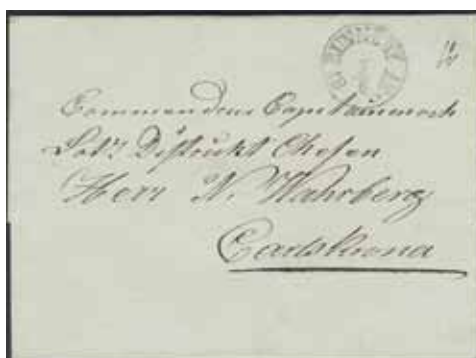 Commendeur Capitainen och
Distrikt Chefen
Herr N. Wahrberg
Carlskrona